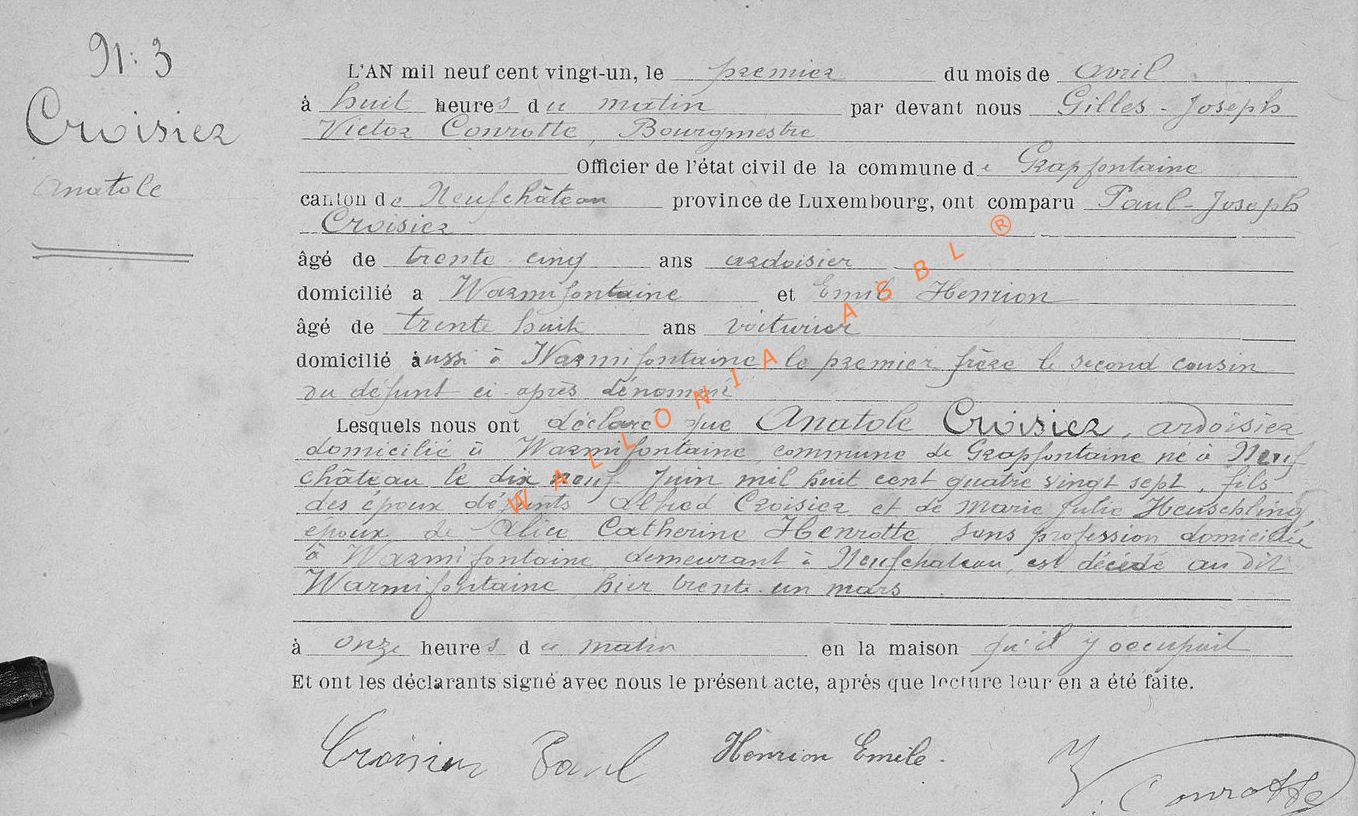 N: 3
Croisier
Anatole
L'AN mil neuf cent vingt-un, le premier du mois de avril
à huit heures du matin par devant nous Gilles-Joseph
Victor Conrotte, Bourgmestre
Officier de l'état civil de la commune de Grapfontaine
canton de Neufchâteau province de Luxembourg, ont comparu Paul-Joseph
Croisier
âgé de trente cinq ans ardoisier
domicilié a Warmifontaine et Emile Henrion
âgé de trente huit ans voiturier
domicilié aussi à Warmifontaine le premier frère le second cousin
du défunt ci-après dénommé
Lesquels nous ont déclaré que Anatole Croisier, ardoisier
domicilié à Warmifontaine, commune de Grapfontaine né à Neuf
château le dix neuf Juin mil huit cent quatre vingt sept, fils
des époux défunts Alfred Croisier et de Marie Julie Heuschling,
époux de Alice Catherine Henrotte, sans profession domiciliée
à Warmifontaine, demeurant à Neufchateau, est décédé au dit
Warmifontaine hier trente-un mars
à onze heures du matin en la maison qu'il y occupait
Et ont les déclarants signé avec nous le présent acte, après que lecture leur en a été faite.
Croisier Paul Henrion Emile.
V. Conrotte
WALLONIA ASBL ®